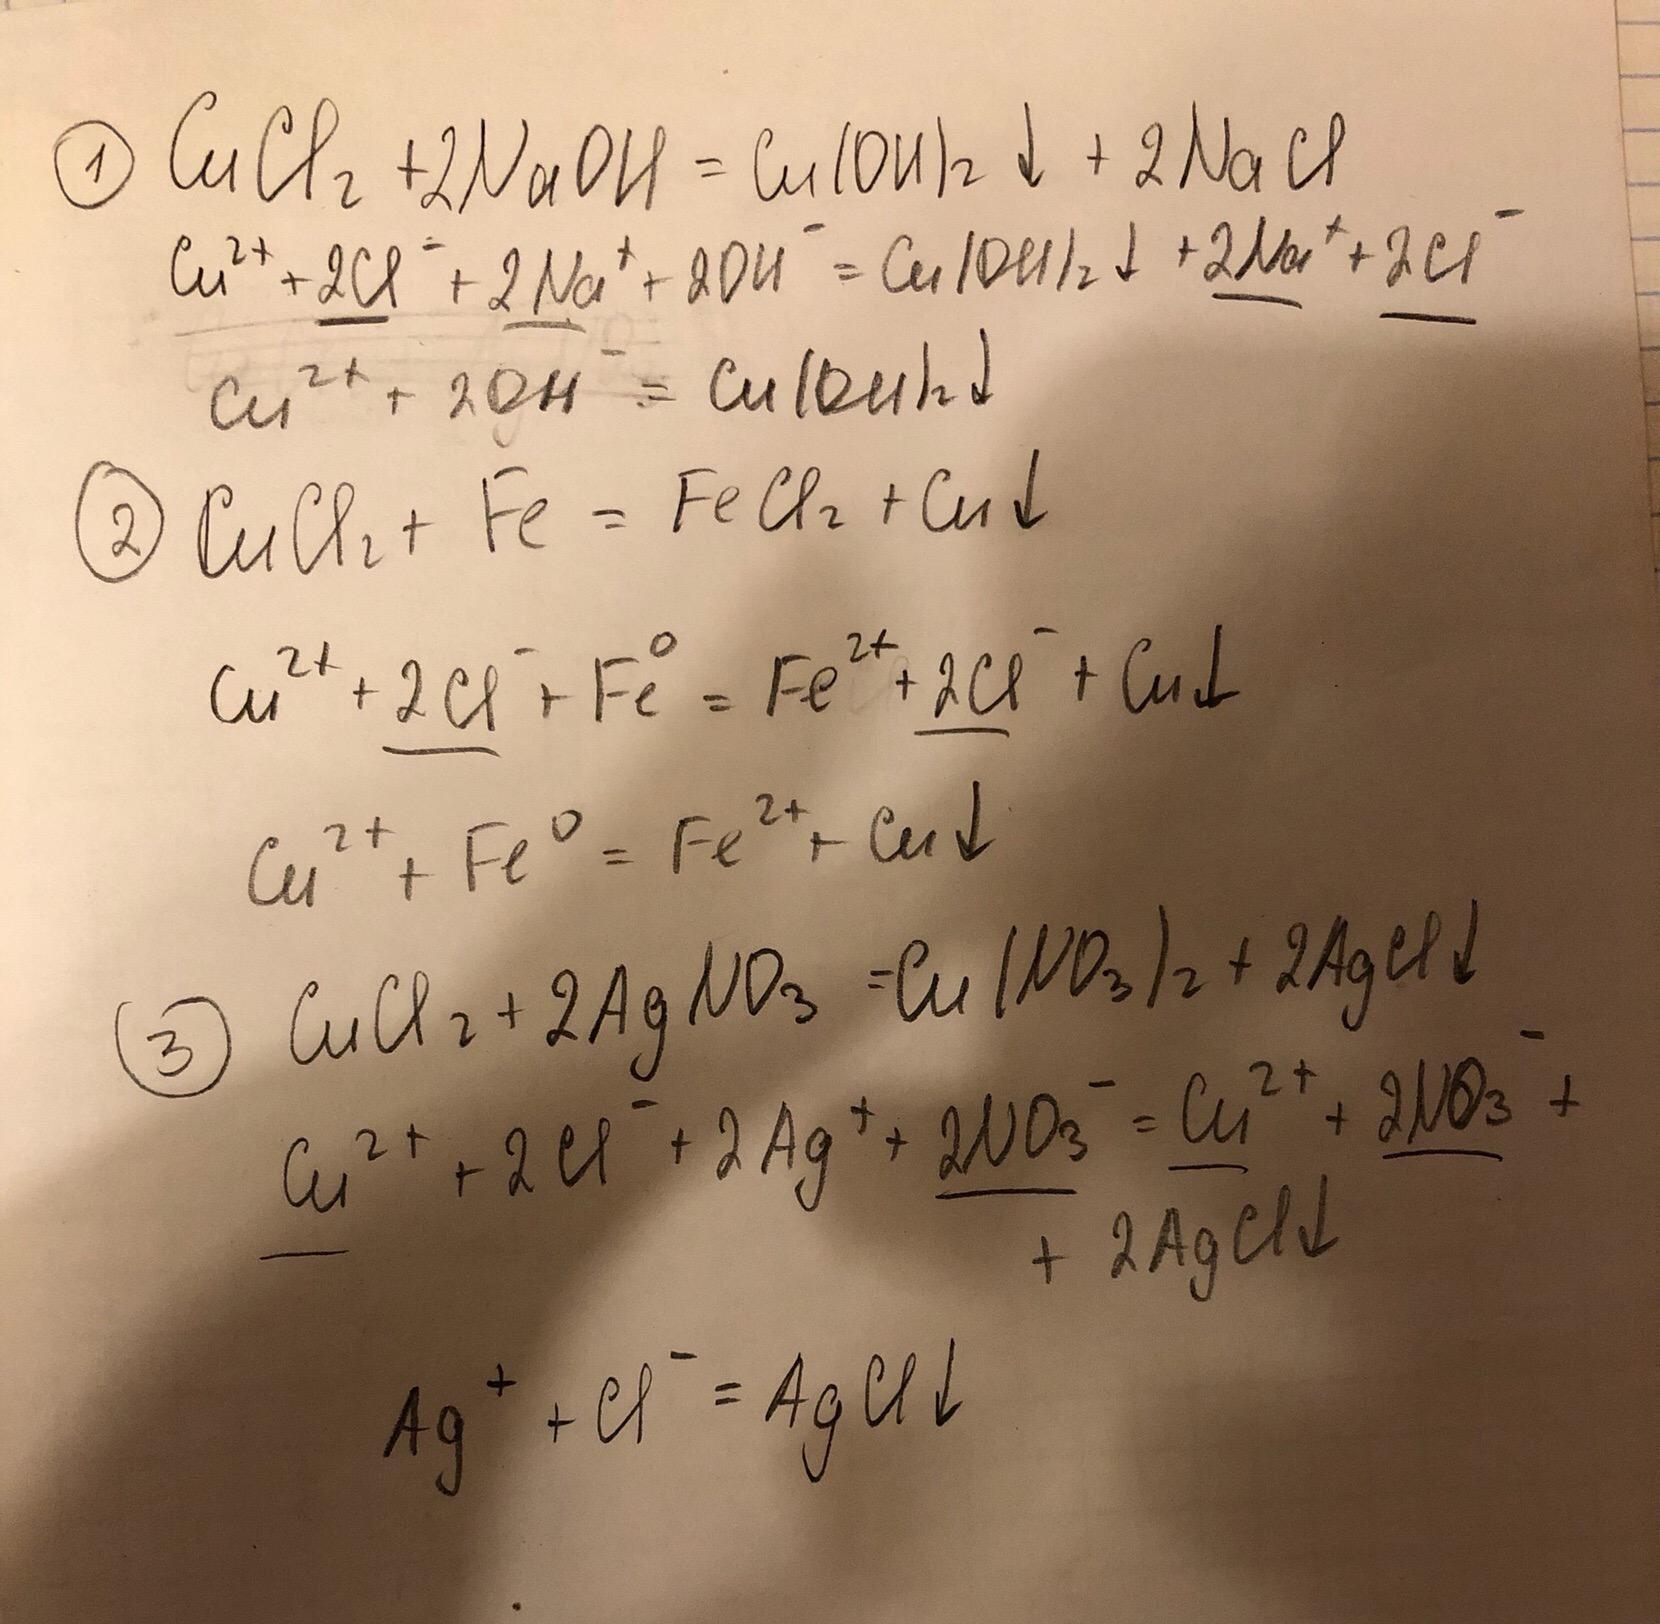 ① CuCl₂ + 2NaOH = Cu(OH)₂↓ + 2NaCl
Cu²⁺ + 2Cl⁻ + 2Na⁺ + 2OH⁻ = Cu(OH)₂↓ + 2Na⁺ + 2Cl⁻
Cu²⁺ + 2OH⁻ = Cu(OH)₂↓
② CuCl₂ + Fe = FeCl₂ + Cu↓
Cu²⁺ + 2Cl⁻ + Fe⁰ = Fe²⁺ + 2Cl⁻ + Cu↓
Cu²⁺ + Fe⁰ = Fe²⁺ + Cu↓
③ CuCl₂ + 2AgNO₃ = Cu(NO₃)₂ + 2AgCl↓
Cu²⁺ + 2Cl⁻ + 2Ag⁺ + 2NO₃⁻ = Cu²⁺ + 2NO₃⁻ +
+ 2AgCl↓
Ag⁺ + Cl⁻ = AgCl↓